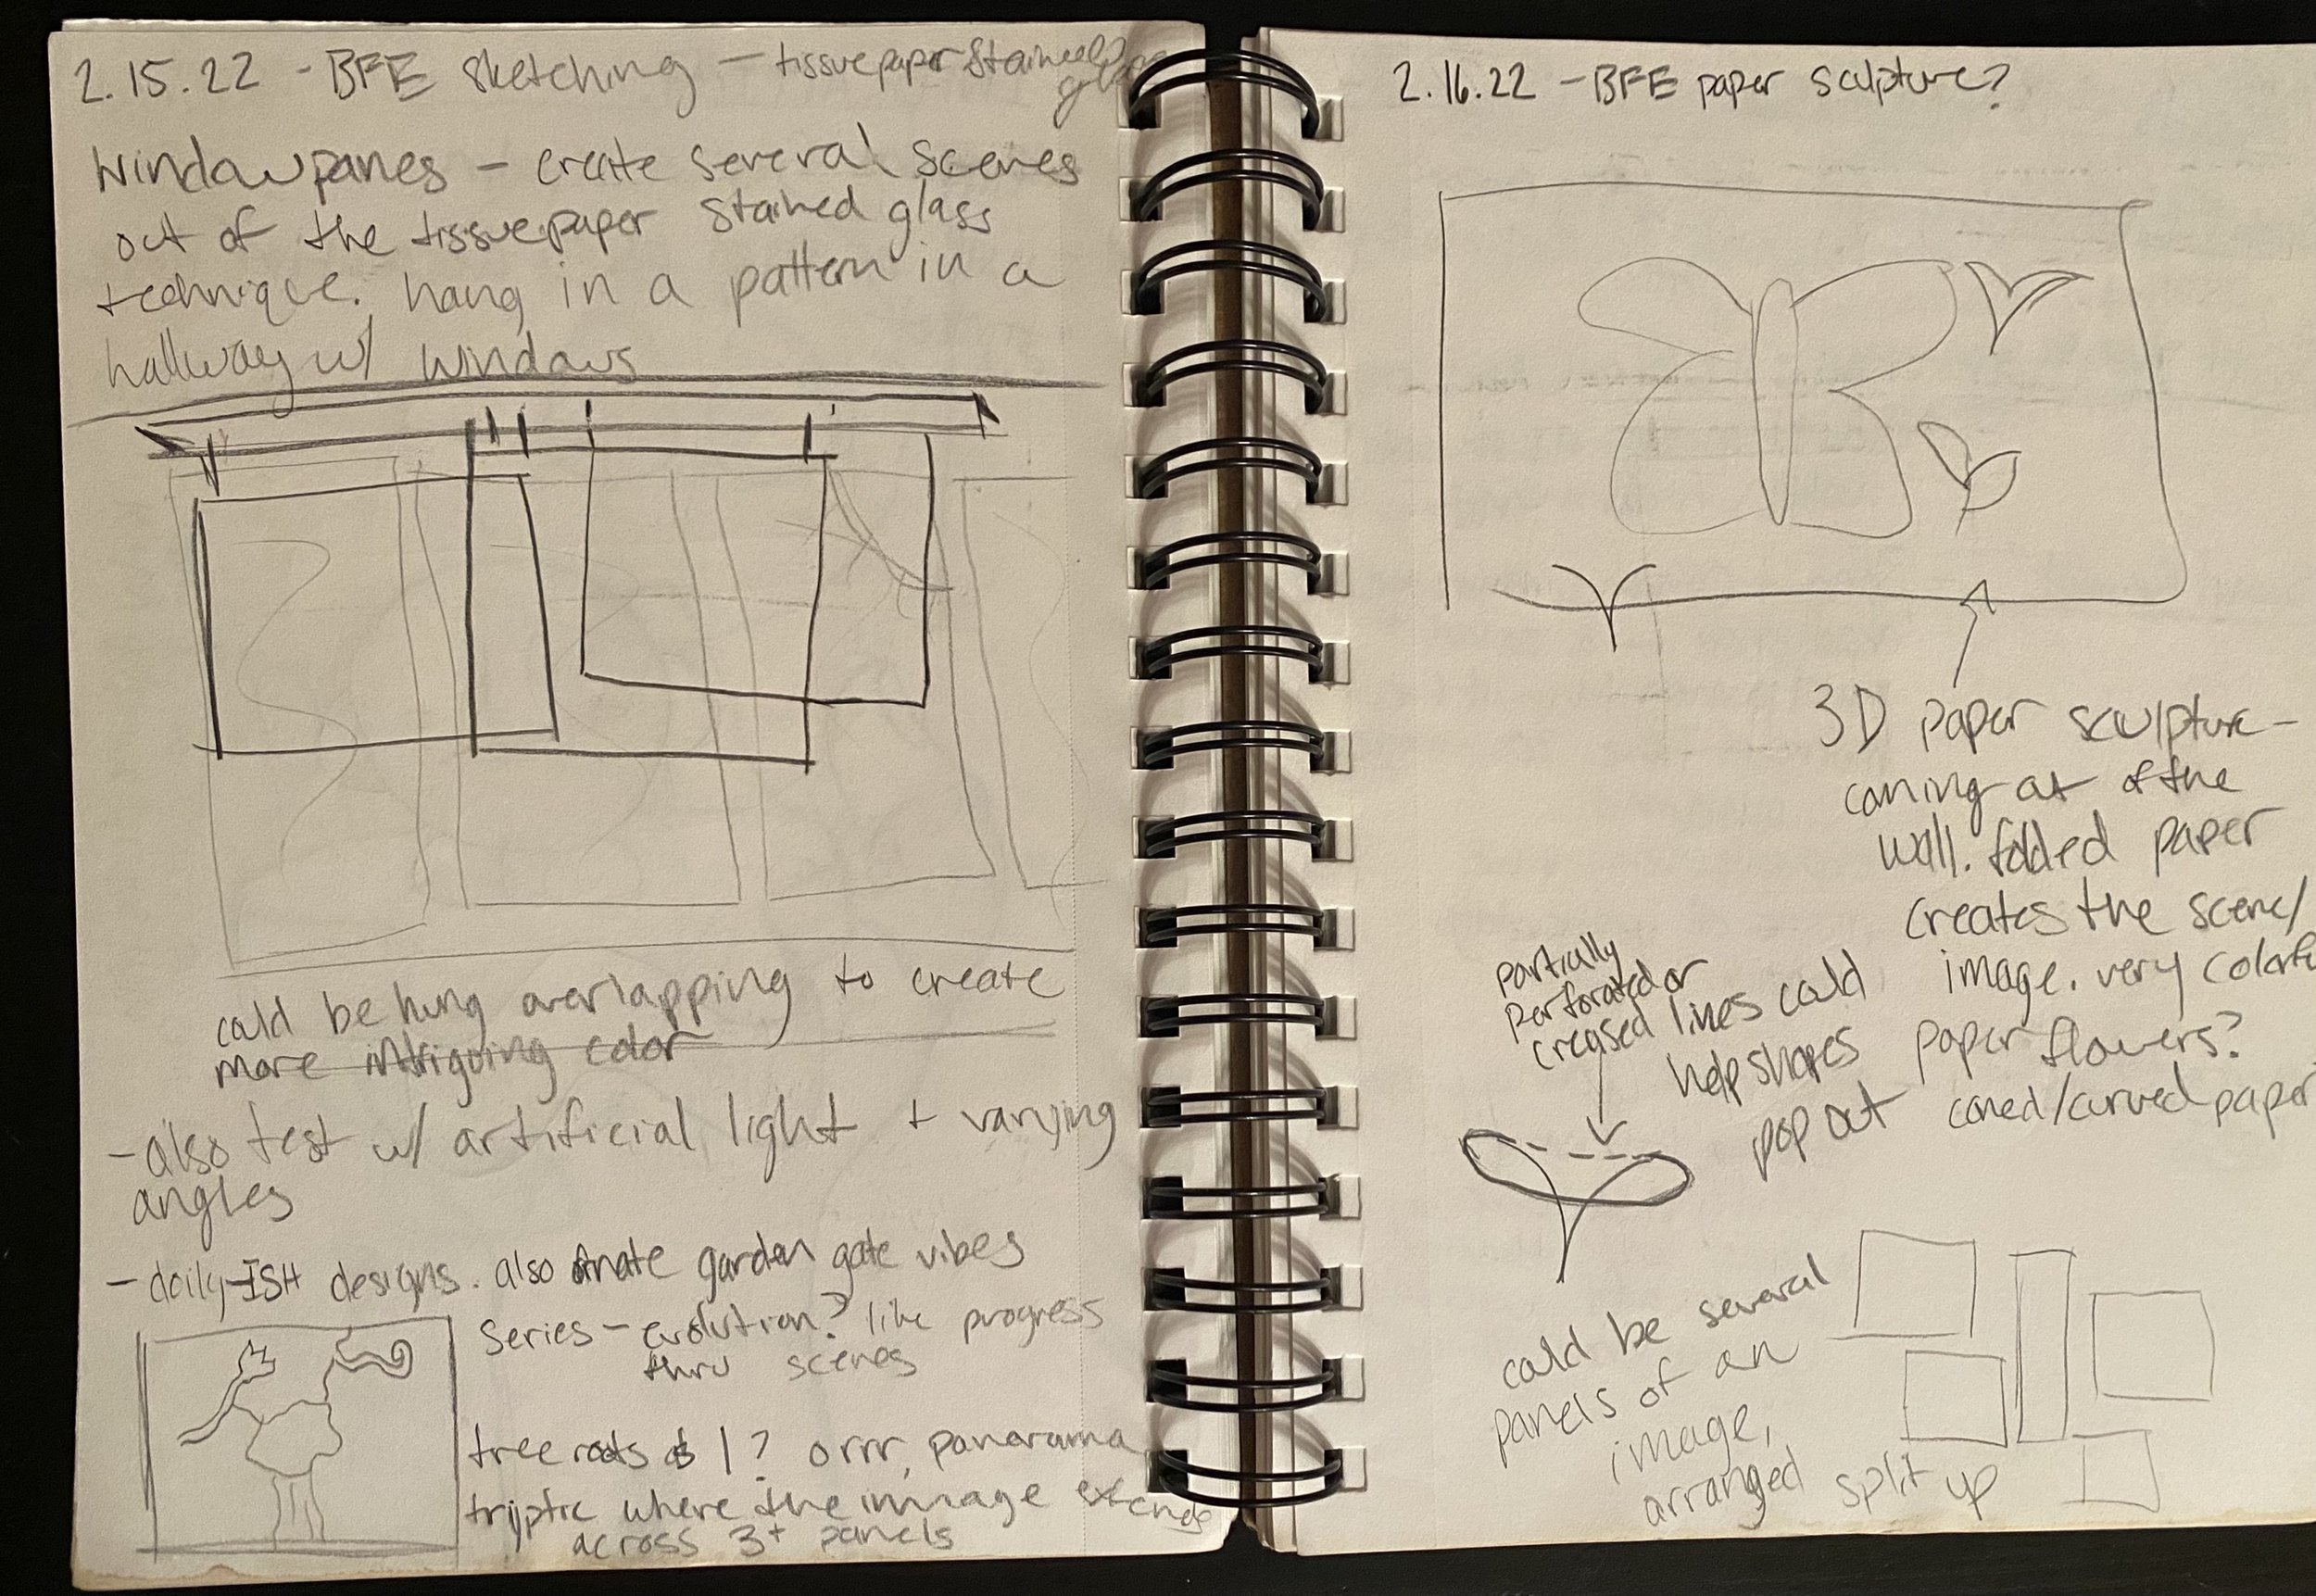 2.15.22 - BFE sketching - tissuepaper stained
glass
Windowpanes - create several scenes
out of the tissuepaper stained glass
technique. hang in a pattern in a
hallway w/ windows
could be hung overlapping to create
more intriguing color
- also test w/ artificial light + varying
angles
- daily-ISH designs. also ornate garden gate vibes
Series - evolution? like progress
thru scenes
tree roots as 1? orrr, panorama
triptic where the image extends
across 3+ panels
2.16.22 - BFE paper sculpture?
3D paper sculpture -
coming out of the
wall. folded paper
creates the scene/
image. very colorful
paper flowers?
coned/curved paper
partially
perforated or
creased lines could
help shapes
pop out
could be several
panels of an
image,
arranged split up